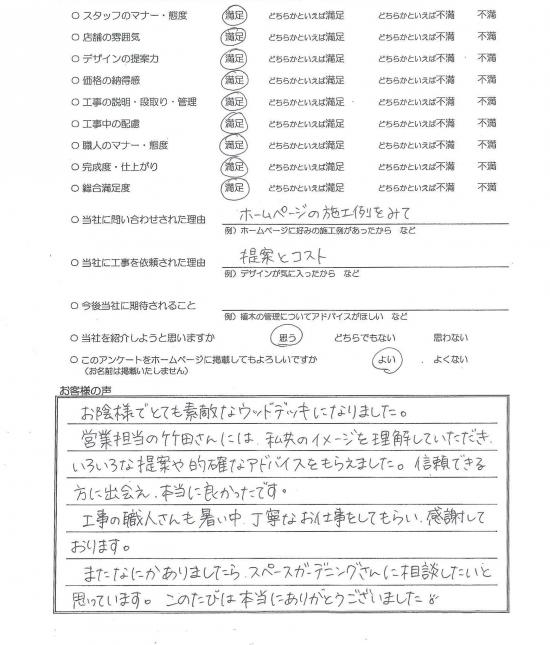 ○ スタッフのマナー・態度 満足 どちらかといえば満足 どちらかといえば不満 不満
○ 店舗の雰囲気 満足 どちらかといえば満足 どちらかといえば不満 不満
○ デザインの提案力 満足 どちらかといえば満足 どちらかといえば不満 不満
○ 価格の納得感 満足 どちらかといえば満足 どちらかといえば不満 不満
○ 工事の説明・段取り・管理 満足 どちらかといえば満足 どちらかといえば不満 不満
○ 工事中の配慮 満足 どちらかといえば満足 どちらかといえば不満 不満
○ 職人のマナー・態度 満足 どちらかといえば満足 どちらかといえば不満 不満
○ 完成度・仕上がり 満足 どちらかといえば満足 どちらかといえば不満 不満
○ 総合満足度 満足 どちらかといえば満足 どちらかといえば不満 不満
○ 当社に問い合わせされた理由 ホームページの施工例をみて
例）ホームページに好みの施工例があったから など
○ 当社に工事を依頼された理由 提案とコスト
例）デザインが気に入ったから など
○ 今後当社に期待されること
例）植木の管理についてアドバイスがほしい など
○ 当社を紹介しようと思いますか 思う どちらでもない 思わない
○ このアンケートをホームページに掲載してもよろしいですか よい よくない
（お名前は掲載いたしません）
お客様の声
お陰様でとても素敵なウッドデッキになりました。
営業担当の竹田さんには、私共のイメージを理解していただき、
いろいろな提案や的確なアドバイスをもらえました。信頼できる
方に出会え、本当に良かったです。
工事の職人さんも暑い中、丁寧なお仕事をしてもらい、感謝して
おります。
またなにかありましたら、スペースガーデニングさんに相談したいと
思っています。このたびは本当にありがとうございました